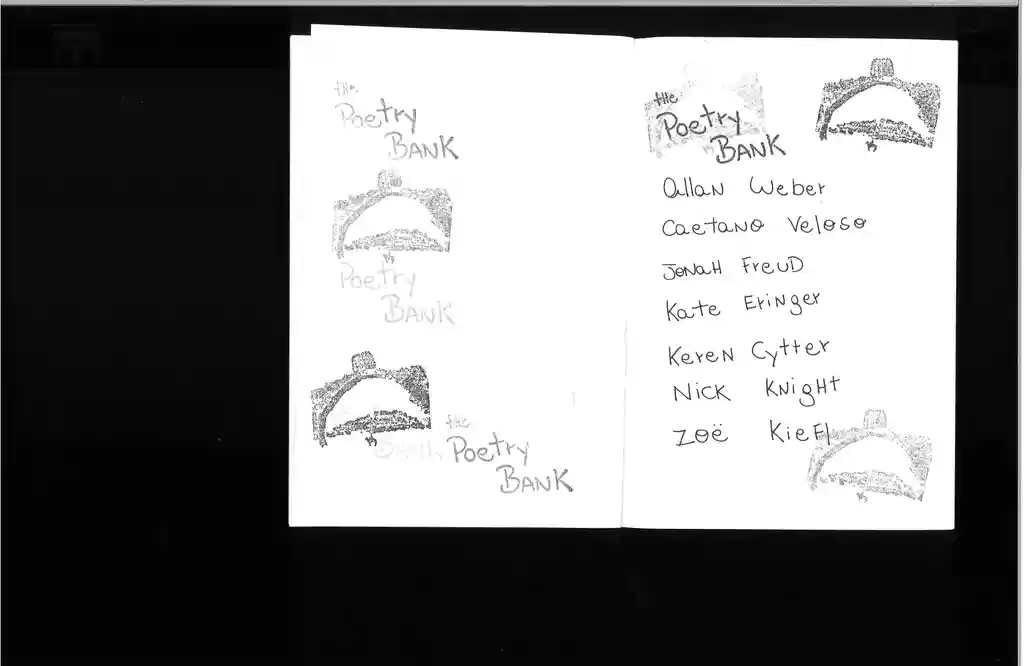 the
Poetry
BANK
Poetry
BANK
the
Poetry
BANK
the
Poetry
BANK
allan Weber
Caetano Veloso
Jonah Freud
Kate Eringer
Keren Cytter
Nick Knight
Zoë Kiefl